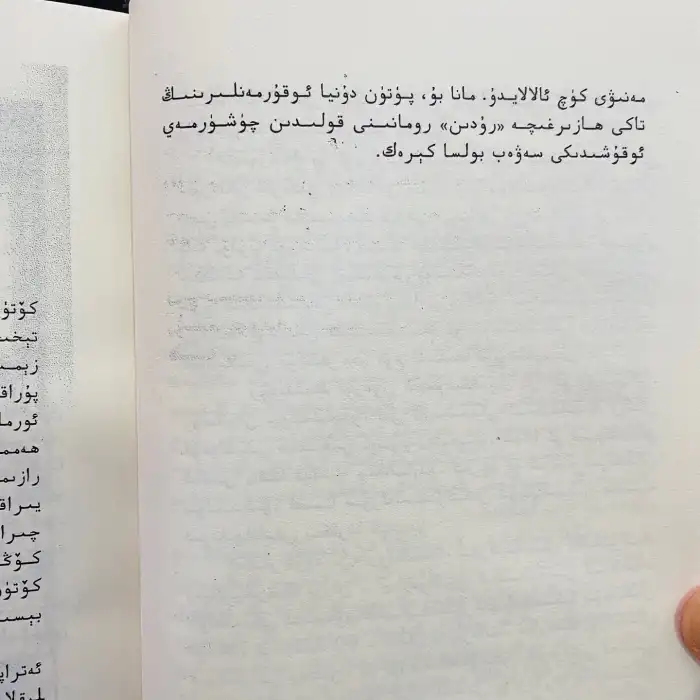 مەنىۋى كۈچ ئالالايدۇ. مانا بۇ، پۈتۈن دۇنيا ئوقۇرمەنلىرىنىڭ
تاكى ھازىرغىچە «رۇدىن» رومانىنى قولىدىن چۈشۈرمەي
ئوقۇشىدىكى سەۋەب بولسا كېرەك.
كۆتۈ
تېخى
زېمى
پۇراق
ئورما
ھەممە
رازىم
يىراق
چىرا
كۆڭ
كۆتۈر
بېسى
ئەتراپ
لىقلا